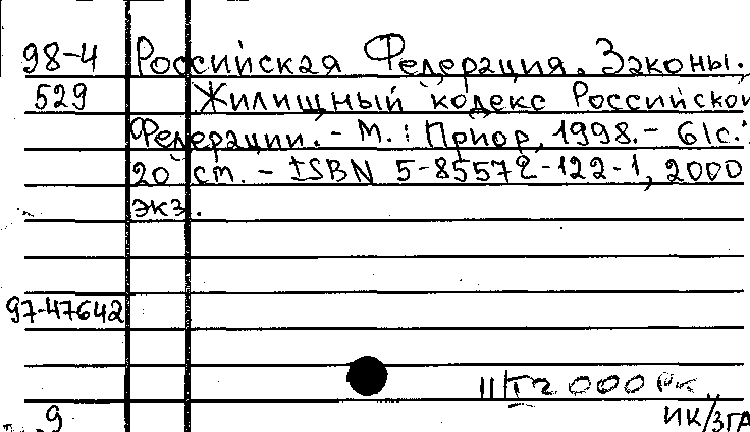 98-4 Российская Федерация. Законы.
529 Жилищный кодекс Российской
Федерации. - М.: Приор, 1998. - 61с.:
20 ст. - ISBN 5-85572-122-1, 2000
экз.
97-47642
2000 рк
9 ИК/ЗГА